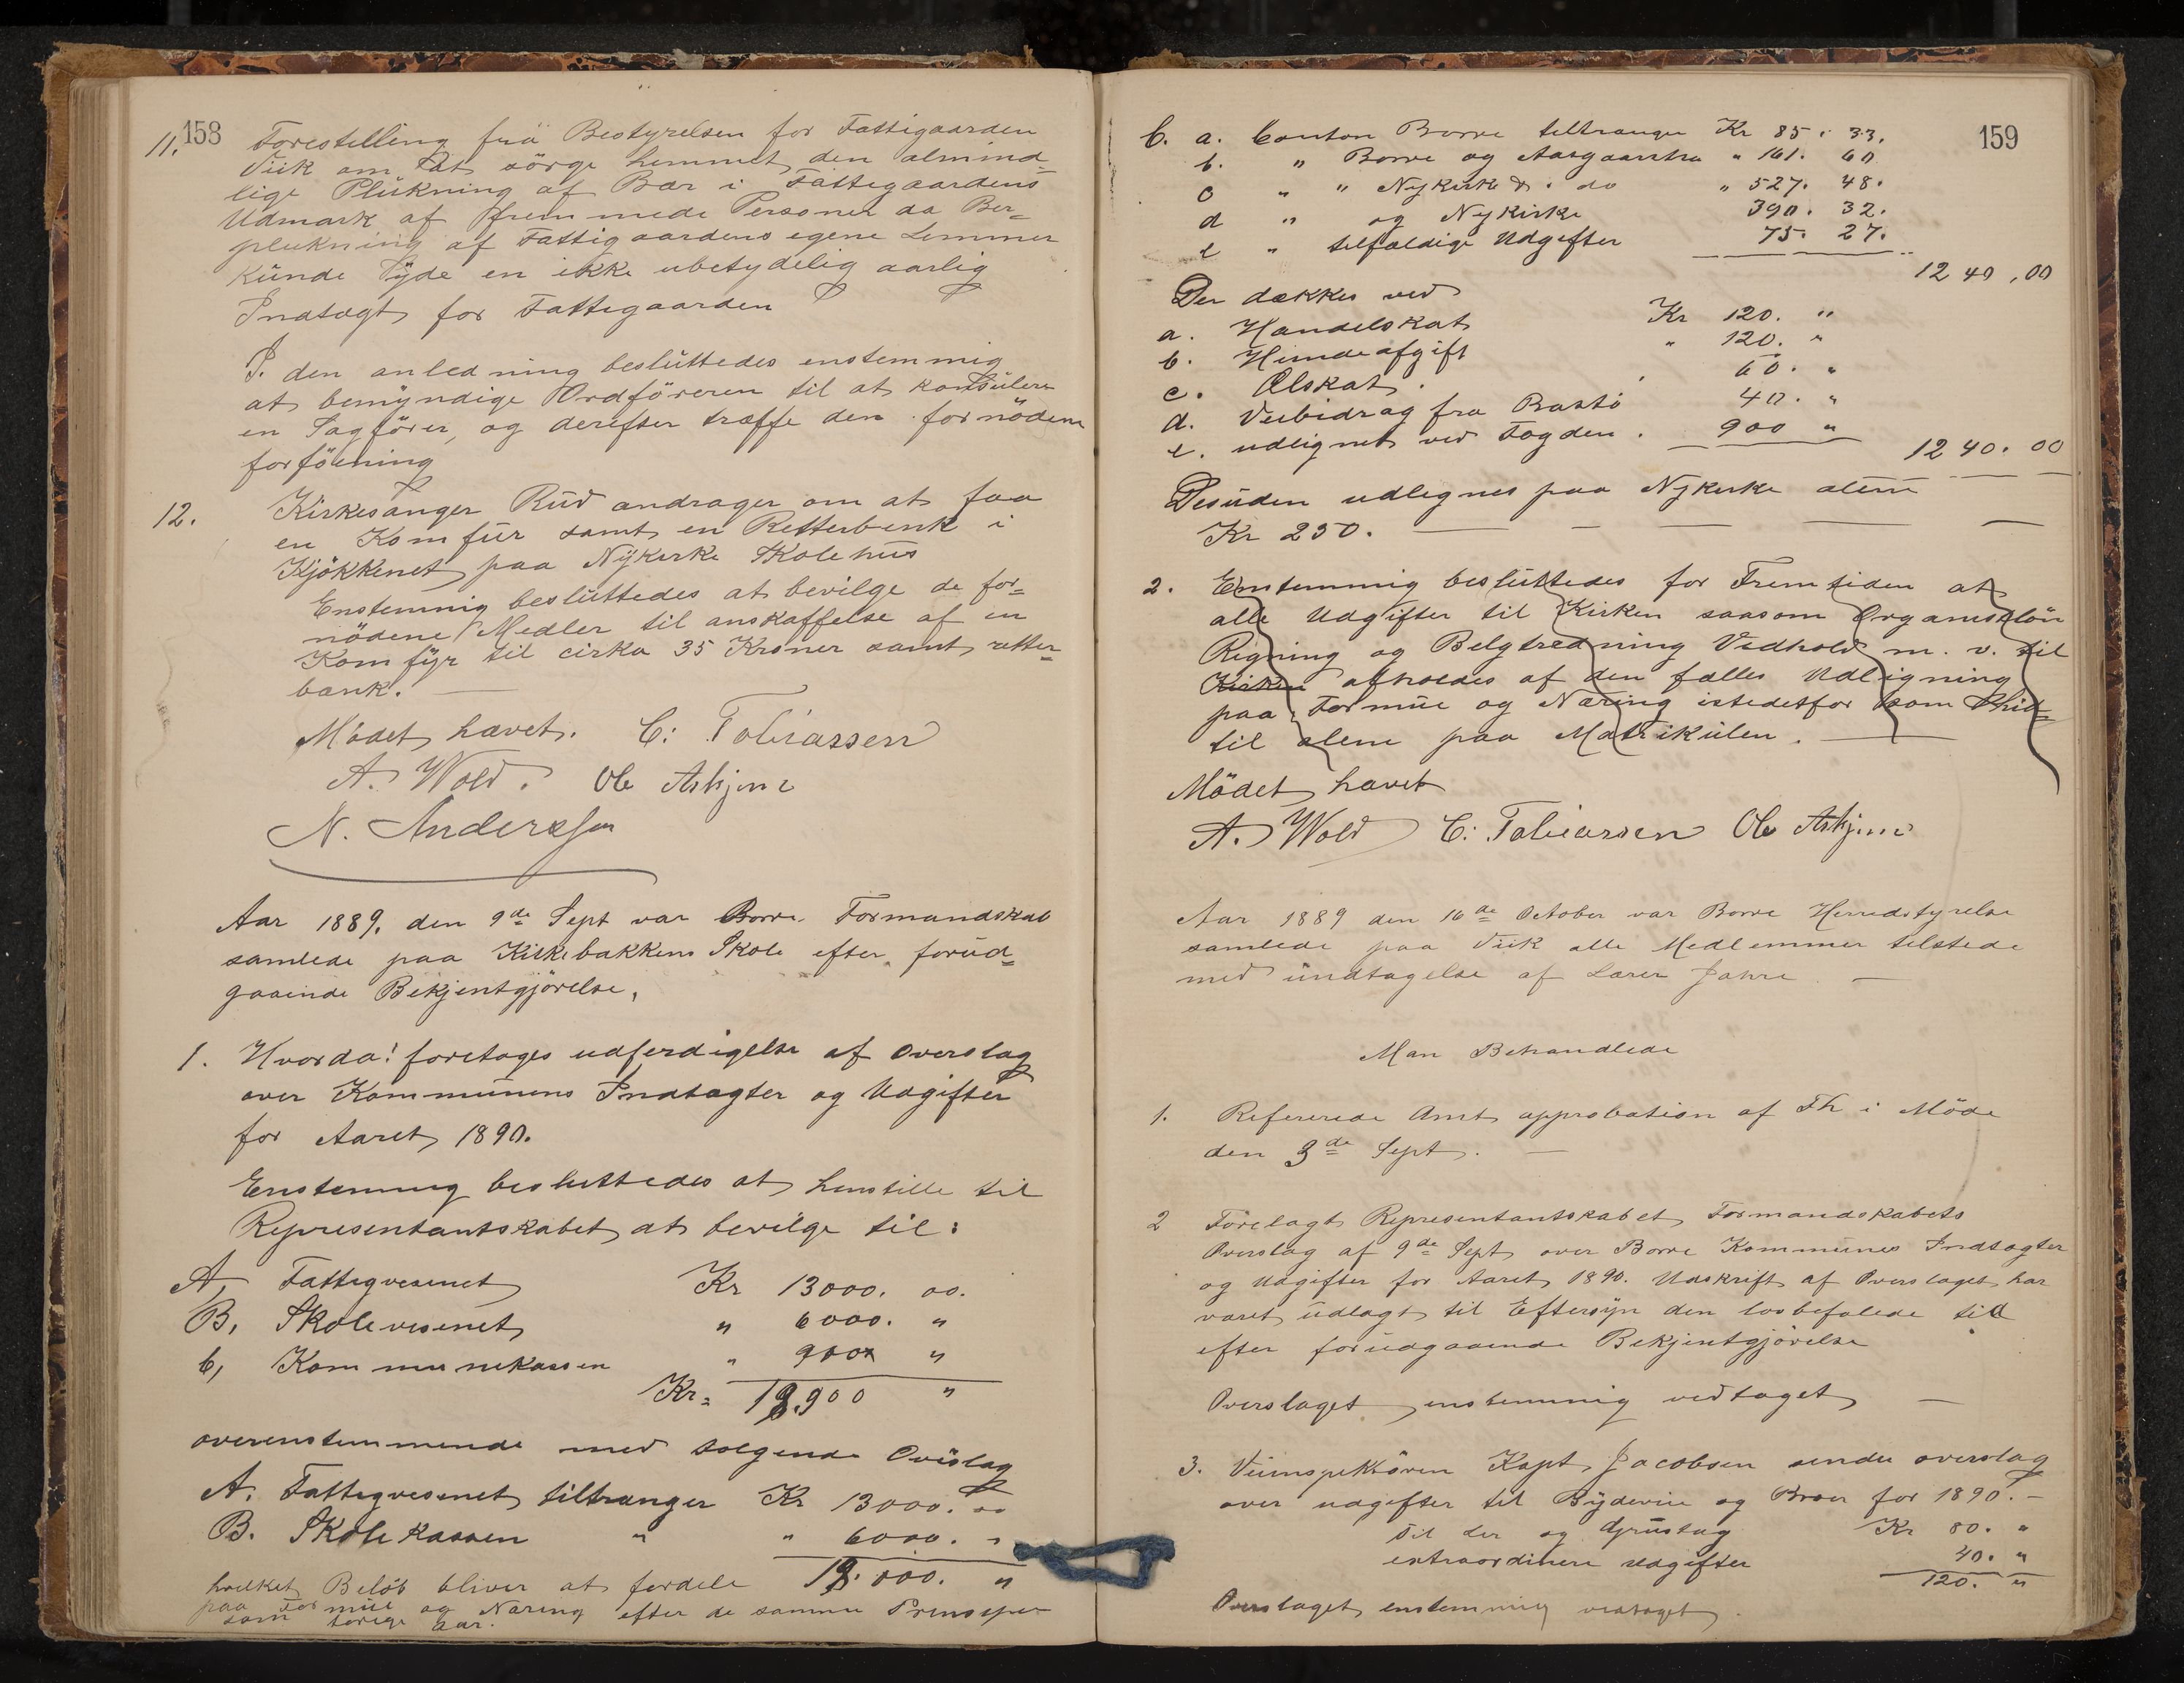 158
11. Forestilling fra Bestyrelsen for Fattigaarden
Viik om at sörge hemmet den almind=
lige Plukning af Bær i Fattigaardens
Udmark af fremmede Personer da Bær=
plukning af Fattigaardens egene Lemmer
kunde yde en ikke ubetydelig aarlig
Indtægt for Fattigaarden
I den anledning besluttedes enstemmig
at bemyndige Ordföreren til at konsulere
en Sagförer, og derefter træffe den fornödene
forföining
12. Kirkesanger Rud andrager om at faa
en Komfur samt en Retterbenk i
Kjökkenet paa Nykirke Skolehus
Enstemmig besluttedes at bevilge de for=
nödene Medler til anskaffelse af en
Komfyr til cirka 35 Kroner samt retter=
bænk.
Mödet hævet. C: Tobiassen
A. Wold. Ole Askjem
N. Anderssen
Aar 1889. den 9de Sept var Borre Formandskab
samlede paa Kirkebakkens Skole efter forud=
gaaende Bekjentgjörelse,
1. Hvorda! foretages udferdigelse af Overslag
over Kommunens Indtægter og Udgifter
for Aaret 1890.
Enstemmig besluttedes at henstille til
Representantskabet at bevilge til:
A, Fattigvesenet Kr 13000. oo.
B, Skolevesenet " 6000. "
C, Kommunekassen " 900 "
Kr= 19.900 "
overenstemmende med følgende Overslag
A. Fattigvesenet tiltrænger Kr 13000. oo
B. Skolekassen " " 6000. "
19.000. "
hvilket Belöb bliver at fordele
paa Formue og Næring efter de samme Prinsiper
som forige Aar.
159
C. a. Conton Borre tiltrænger Kr 85. 33.
b. " Borre og Aasgaarstra " 161. 60
c " " Nykirke & do " 527. 48.
d " og Nykirke 390. 32.
e " tilfældige Udgifter 75. 27.
1240,00
Der dækkes ved
a. Handelskat Kr 120. "
b. Hundeafgift " 120. "
c. Ølskat. 60. "
d. Veibidrag fra Bastö 40. "
e. udlignet ved Fogden. 900 "
1240.00
Desuden udlignes paa Nykirke alene
Kr 250.
2. Enstemmig besluttedes for Fremtiden at
alle Udgifter til Kirken saasom Organistlön
Rigning og Belgtrædning Vedhold m. v. til
Kirken afholdes af den fælles Udligning
paa Formue og Næring istedetfor som Hid=
til alene paa Matrikulen.
Mödet hævet
A. Wold C: Tobiassen Ole Askjem
Aar 1889 den 16de October var Borre Herredstyrelse
samlede paa Viik alle Medlemmer tilstede
med undtagelse af Lærer Jahre
Man Behandlede
1. Refererede Amts approbation af Fh i Möde
den 3de Sept.
2 Forelagt Representantskabet Formandskabets
Overslag af 9de Sept over Borre Kommunes Indtægter
og Udgifter for Aaret 1890. Udskrift af Overslaget har
været udlagt til Eftersyn den lovbefalede tid
efter forudgaaende Bekjentgjörelse
Overslaget enstemmig vedtaget
3. Veiinspektören Kapt Jacobsen sender overslag
over udgifter til Bydeveie og Broer for 1890.
til Ler og Grustag Kr 80. "
extraordinere Udgifter 40. "
120. "
Overslaget enstemmig vedtaget.